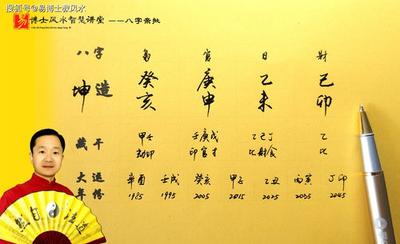 搜狐号@易博士教风水
易 博士风水智慧讲堂 ——八字案批
八字 枭 官 日 财
坤造 癸 庚 乙 己
亥 申 未 卯
藏干 甲壬 壬庚戊 乙己丁 乙
劫印 印官才 比财食 比
大运 辛酉 壬戌 癸亥 甲子 乙丑 丙寅 丁卯
年份 1985 1995 2005 2015 2025 2035 2045